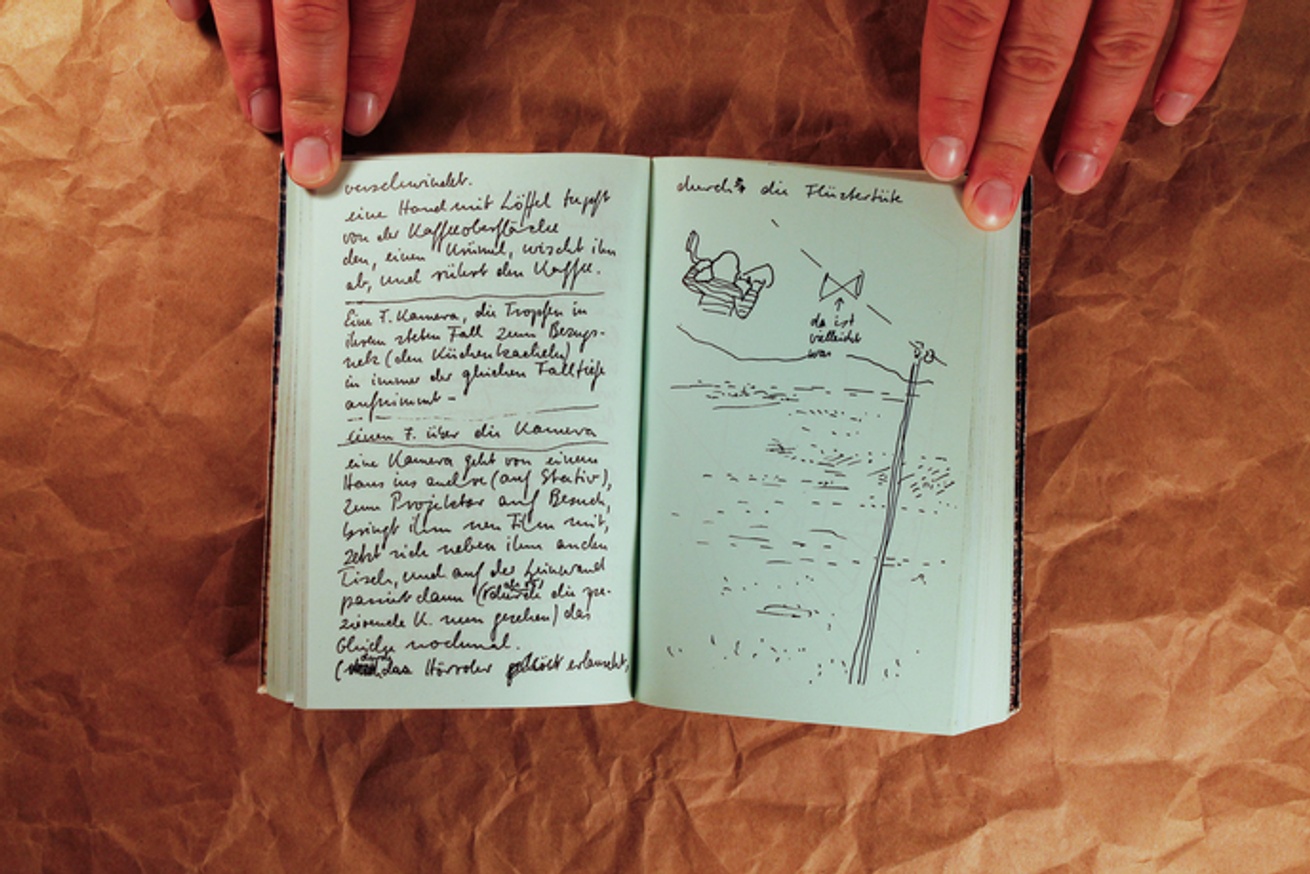 verschwindet.
eine Hand mit Löffel tupft
von der Kaffeeoberfläche
den, einen Krümel, wischt ihn
ab, und rührt den Kaffee.
Eine F. Kamera, die Tropfen in
ihrem steten Fall zum Bezugs-
netz (den Küchenkacheln)
in immer der gleichen Falltiefe
aufnimmt –
einen F. über die Kamera
eine Kamera geht von einem
Haus ins andre (auf Stativ),
zum Projektor auf Besuch,
bringt ihm nen Film mit,
setzt sich neben ihm an den
Tisch, und auf der Leinwand
passiert dann (durch die pro-
zierende K. nun gesehen) das
Gleiche nochmal.
(durch das Hörrohr erlauscht,
durch die Flüstertüte
da ist
vielleicht
was